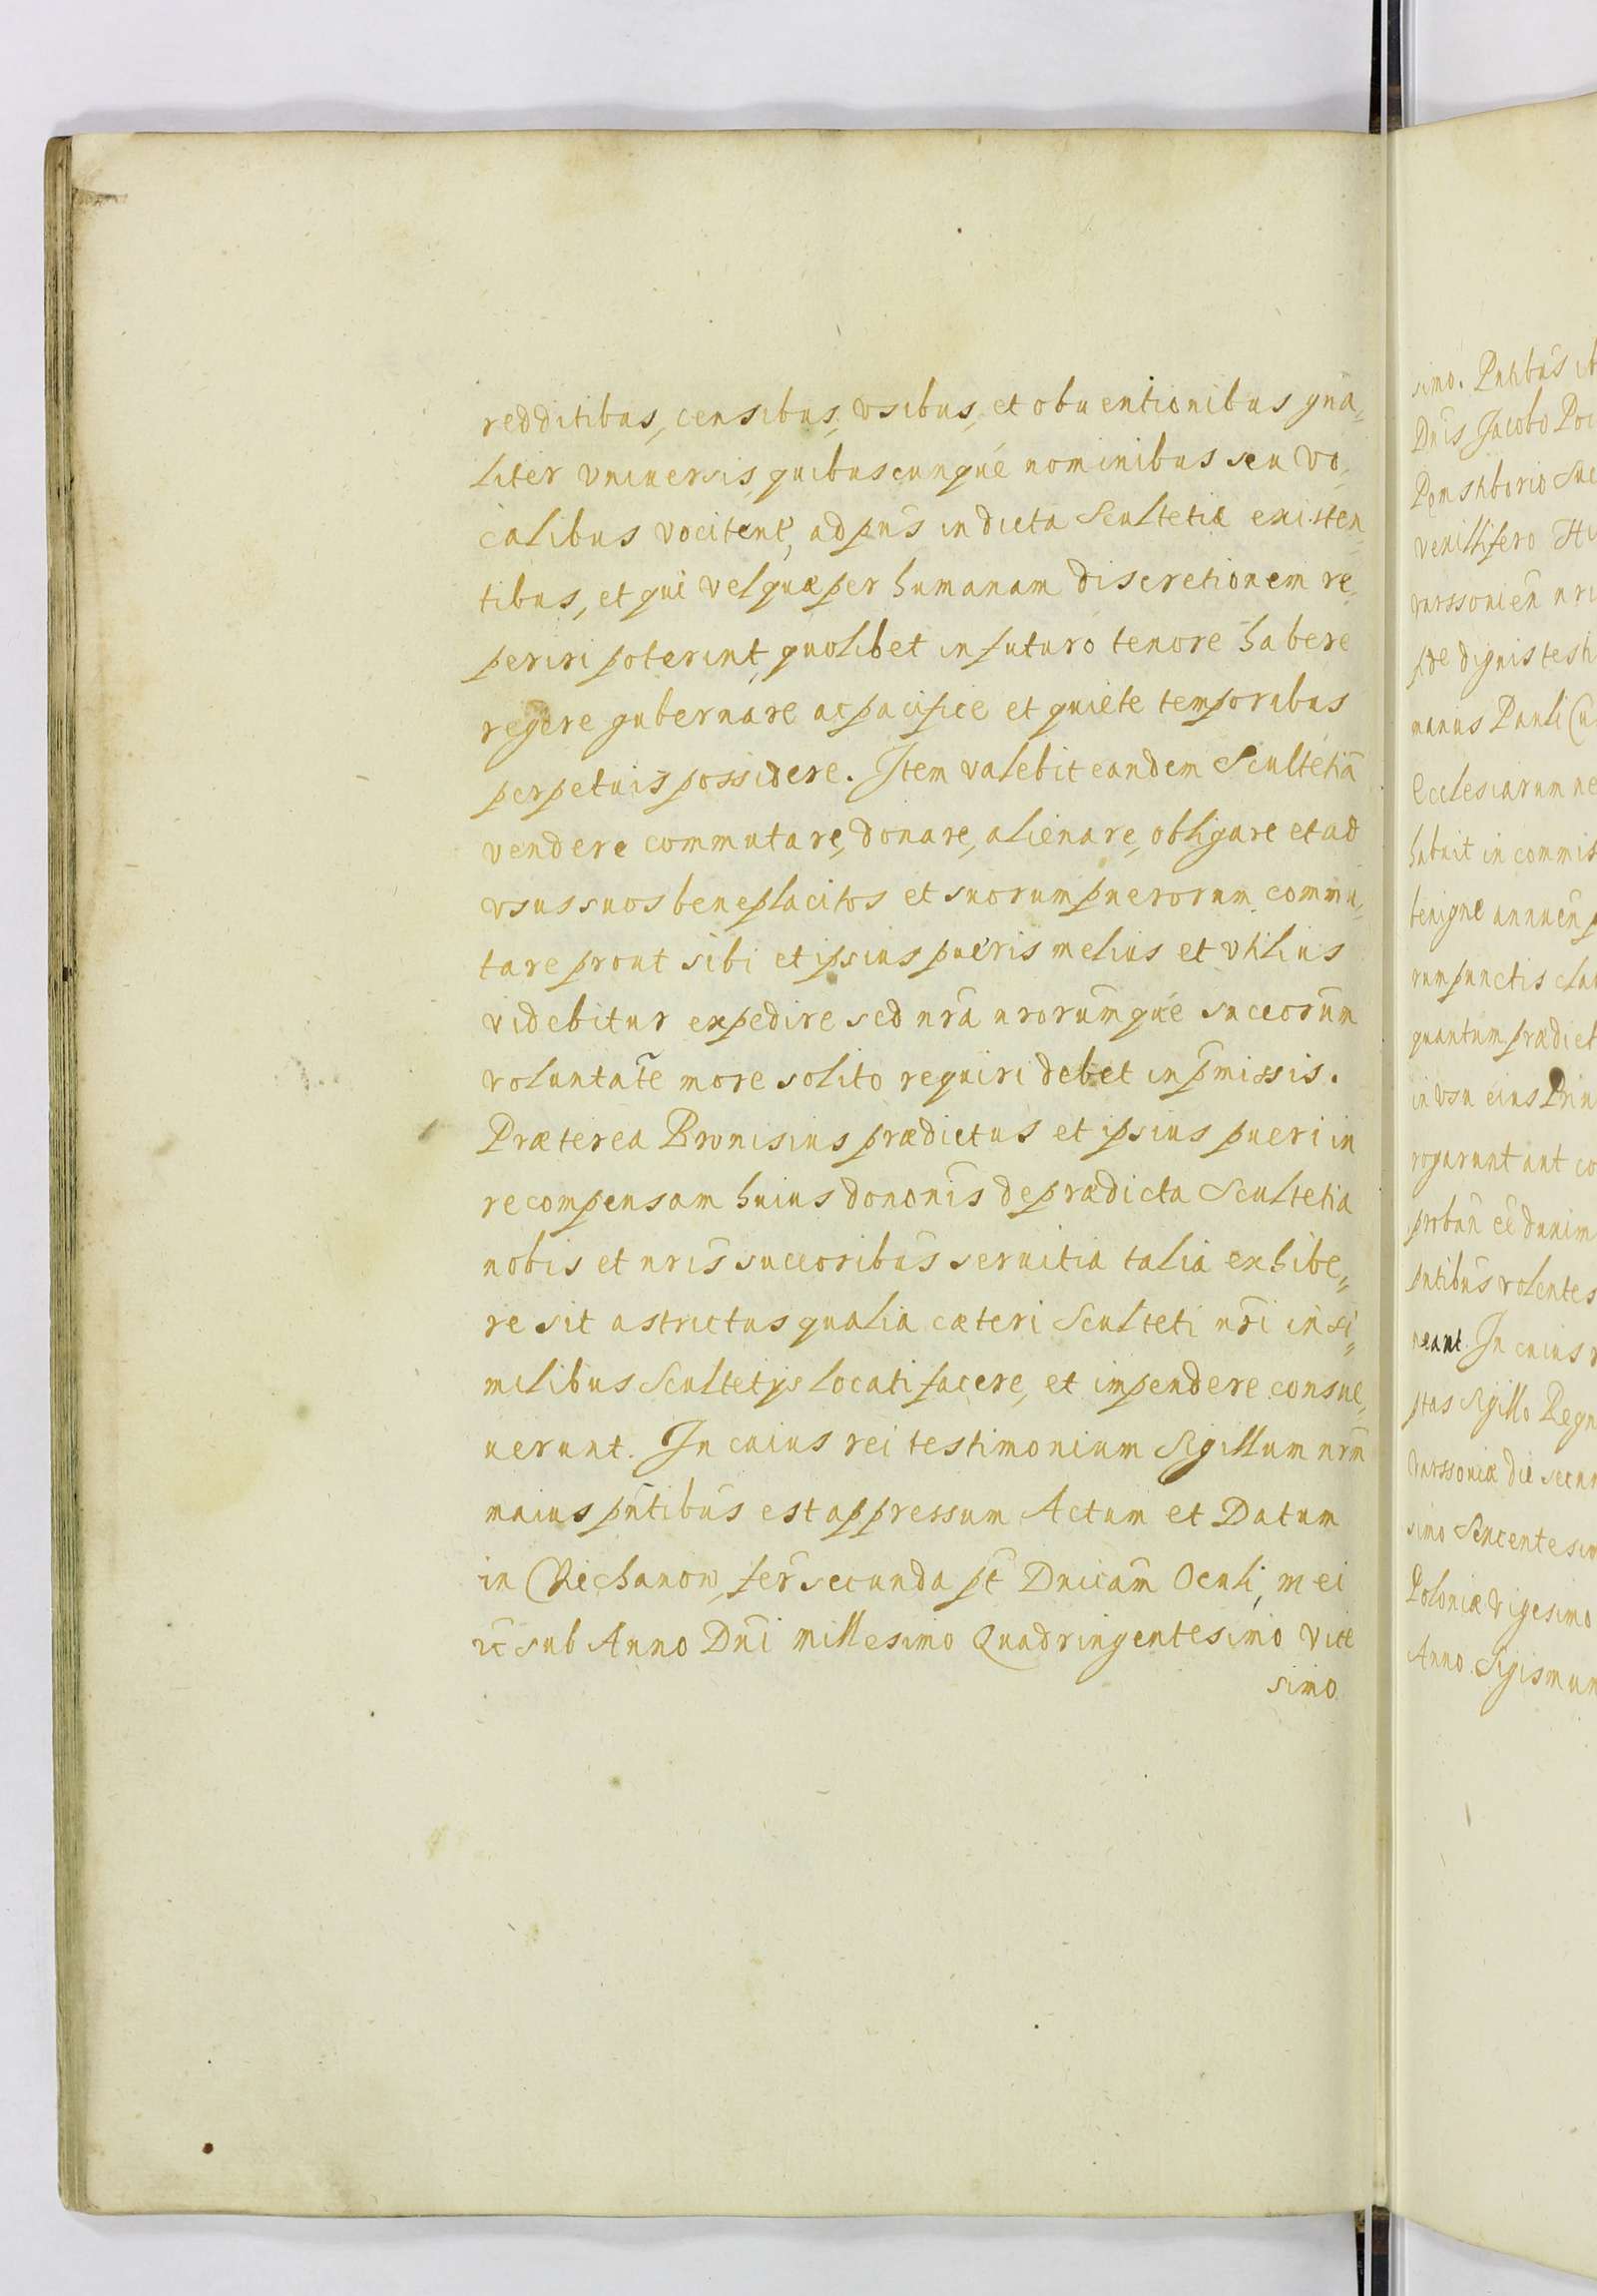 redditibus, censibus, vsibus, et obuentionibus gna̅,,
liter vniuersis, quibuscunque nominibus seu vo,,
calibus vocitent̃, ad pn̅s in dicta Scultetia existen,,
tibus, et qui vel quæ per humanam discretionem re,,
periri poterint, quolibet in futuro tenore habere
regere gubernare ac pacifice et quiete temporibus
perpetuis possidere. Item valebit eandem Scultetia̅
vendere commutare, donare, alienare, obligare et ad
vsus suos beneplacitos et suorum puerorum commu,,
tare prout sibi et ipsius pueris melius et vtilius
videbitur expedire sed nra̅ nroru̅mque succoru̅m
voluntat̅e more solito requiri debet in p̅missis.
Præterea Bronisius prædictus et ipsius pueri in
recompensam huius donon̅is de prædicta Scultetia
nobis et nri̅s succoribu̅s seruitia talia exhibe,,
re sit astrictus qualia cæteri Sculteti nr̅i in si,,
milibus Scultetijs locati facere, et impendere consue,,
uerunt. In cuius rei testimonium Sigillum nrm̅
maius pn̅tibu̅s est appressum Actum et Datum
in Czechanow, fer̅ secunda pt̅ Dnica̅m Oculi, mei
ec̅ sub Anno Dn̅i millesimo Quadringentesimo vice
simo
simo. Pntibu̅s ib
Dn̅is Jacobo
venillifero
varssonien̅ nri
fide dignis testi
manus Pauli
Ecclesiarum ne
habuit in commis
benigne annuen̅
rum punctis clau
quantum prædict
in vsu eius
rogarunt aut co
proban̅ ee̅ duxim
pntibu̅s volentes
neant. In cuius
ptas Sigillo Regn
varssoniæ die secun
simo Sexcentesim
Poloniæ vigesimo
Anno. Sigismun